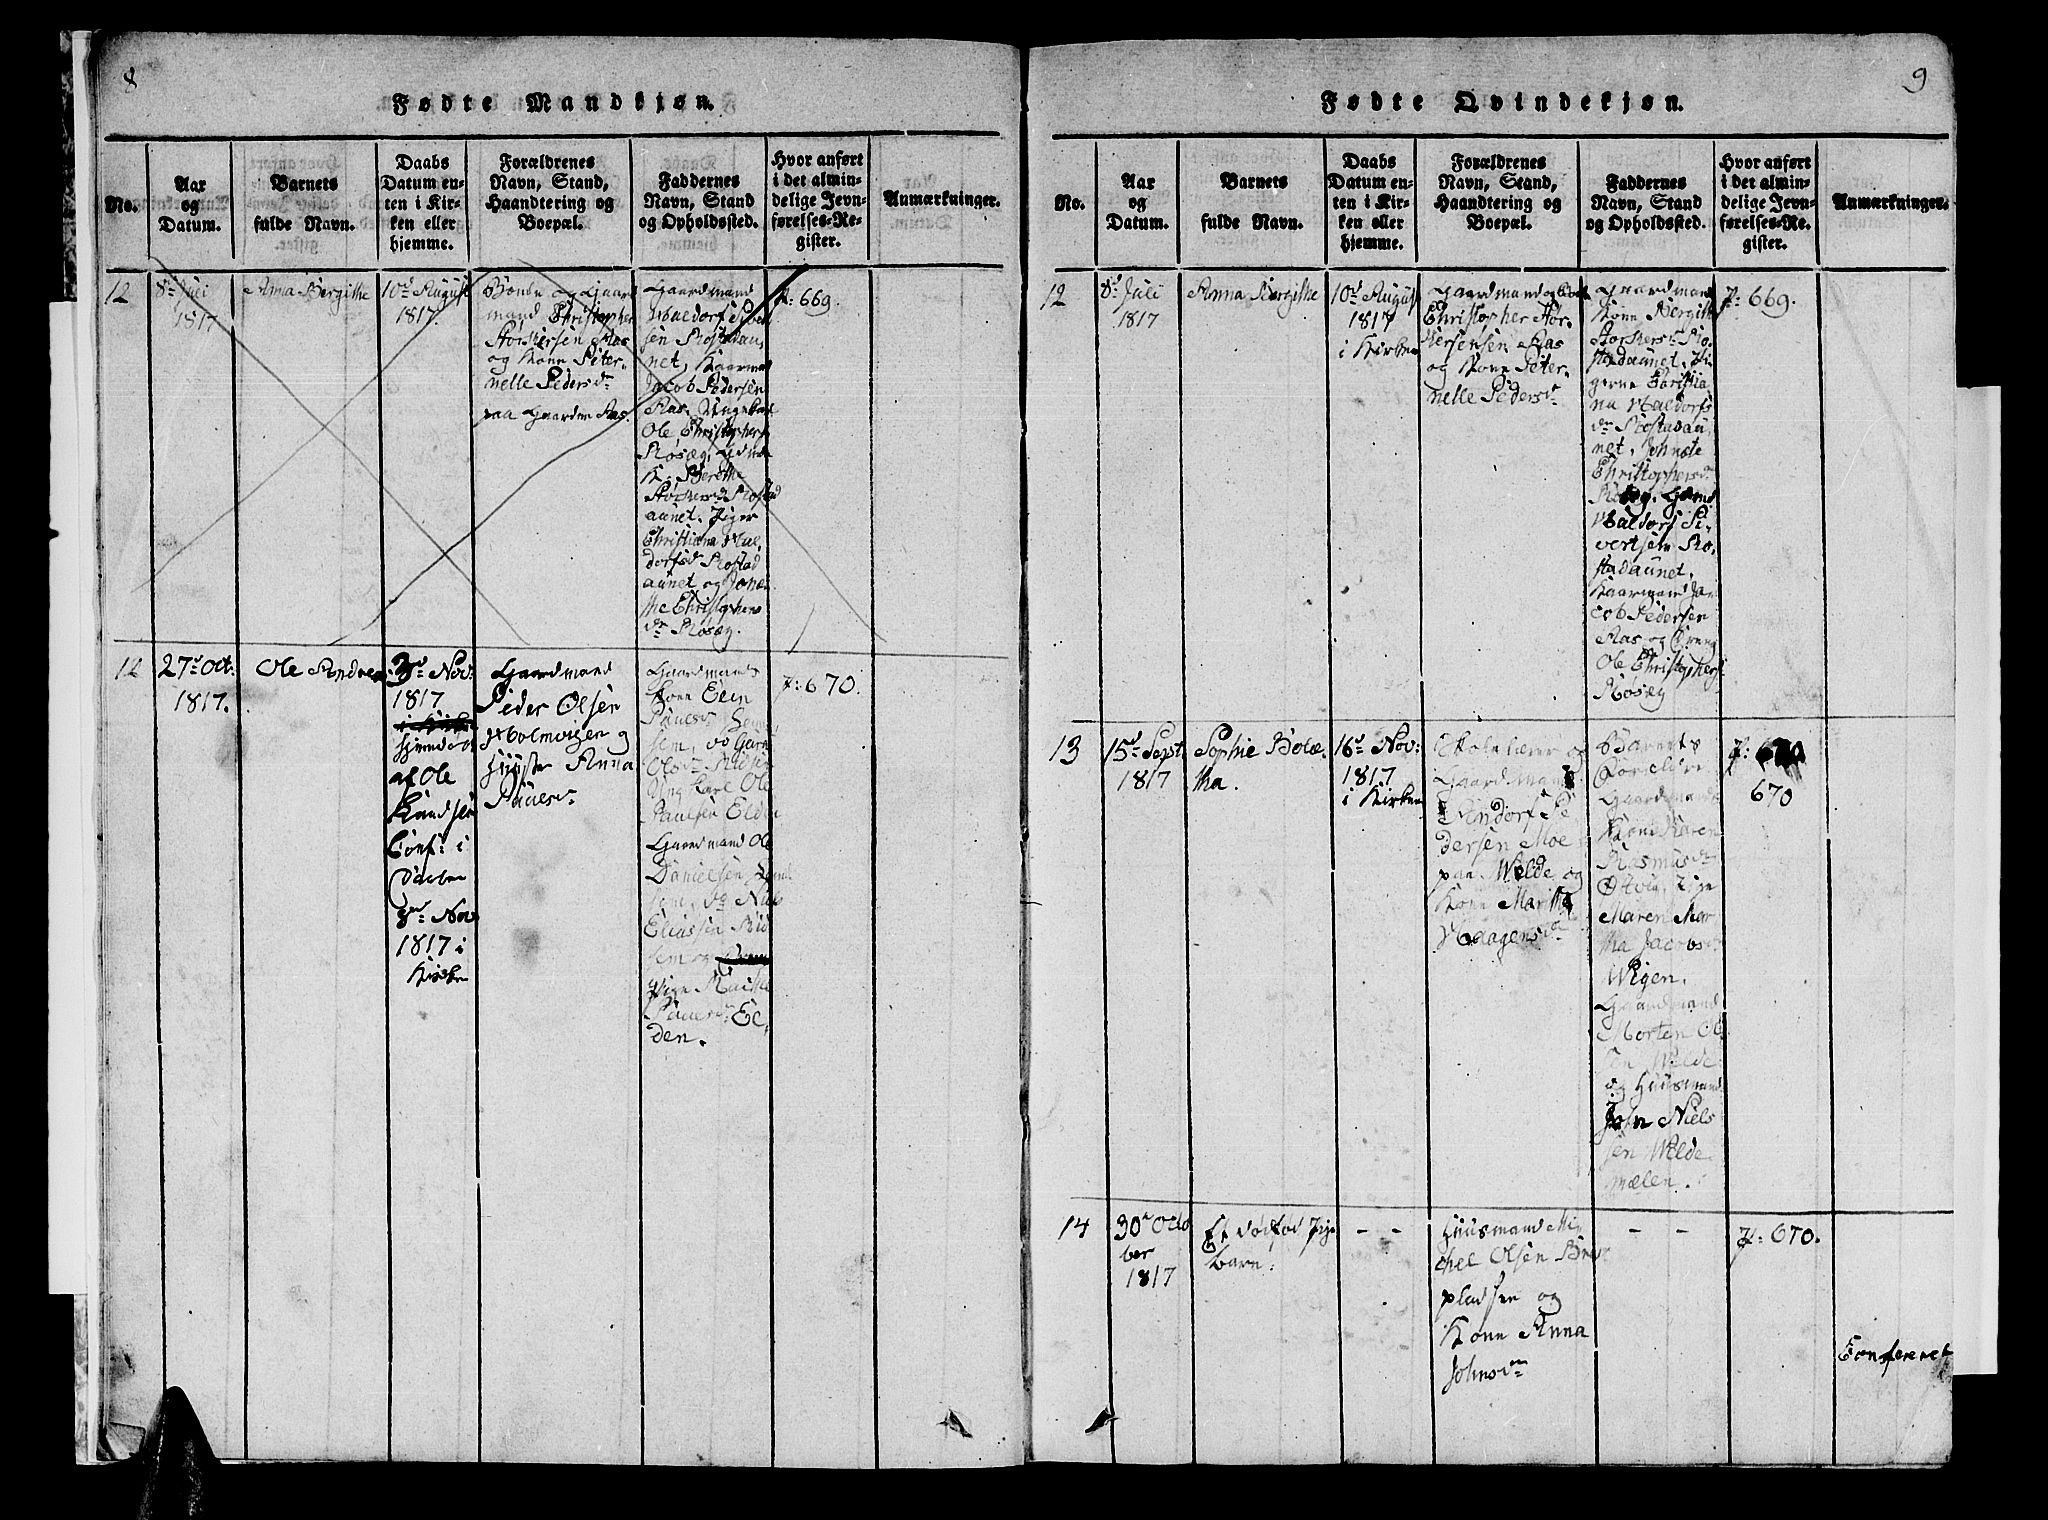 8
Fødte Mandkjøn.
No.
Aar
og
Datum.
Barnets
fulde Navn.
Daabs
Datum en-
ten i Kir-
ken eller
hjemme.
Forældrenes
Navn, Stand,
Haandtering og
Boepæl.
Faddernes
Navn, Stand
og Opholdssted.
Hvor anført
i det almin-
delige Jevn-
førelses-Re-
gister.
Anmærkninger.
12
8de Juli
1817
Anna Bergithe
10de August
1817.
Bonde og Gaard
mand Christopher
Størkersen Aas
og Kone Peter-
nelle Pedersdr
paa Gaarden Aas.
Gaardmand
Waldorf Siver
sen Rostadau
net, Kaarmd
Jacob Pedersen
Aas, Ungekarl
Ole Christophers
Rosæg,
K. Berethe
Størkersd Rostad
aunet. Piger
Christiana Wal
dorfsd Rostad
aunet og Johne
the Christophers
dr Rosæg.
f: 669.
12
27de Oct.
1817.
Ole Andreas
3de Nov:
1817
hjemdøbt
af Ole
Knudsen
Conf: i
Daaben
8de Nov
1817 i
Kirken
Gaardmand
Peder Olsen
Holmvigen og
Hustr Anna
Paulsdr
Gaardmands
Kone Elen
Paulsdr
sem, do Guru
Olsdr
Ung Karl Ole
Paulsen Elden
Gaardmand Ole
Danielsen
sem, do Niels
Eliassen
sem og
Pige
Paulsdr El-
den.
f: 670.
9
Fødte Qvindekjøn.
No.
Aar
og
Datum.
Barnets
fulde Navn.
Daabs
Datum en-
ten i Kir-
ken eller
hjemme.
Forældrenes
Navn, Stand,
Haandtering og
Boepæl.
Faddernes
Navn, Stand
og Opholdssted.
Hvor anført
i det almin-
delige Jevn-
førelses-Re-
gister.
Anmærkninger.
12
8de Juli
1817
Anna Bergithe
10de August
1817
i Kirken
Gaardmand og
Christopher Stør-
kersensen Aas
og Kone Peter-
nelle Pedersdr
Gaardmands
Kone Bergithe
Størkersdr Ro-
stadaunet. Pi-
gerne Christia
na Waldorfs
dr Rostadau
net, Johnete
Christophersdr
Rosæg. Gaardmd
Waldorf Si-
vertsen Ro-
stadaunet.
Kaarmand Ja-
cob Pedersen
Aas og Dreng
Ole Christophers
Rosæg
f: 669.
13
15de Sept
1817
Sophie Bolæ-
tha.
16de Nov:
1817
i Kirken
Skolelærer og
Gaardmand
Endorf Pe
dersen Moe
paa Welde og
Kone Martha
Haagensdr
Barnets
Forældre
Gaardmands
Kone Karen
Rasmusdr
Østvig, Pige
Maren Mar
tha Jacobsdr
Wigen.
Gaardmand
Morten Ol
sen Welde
og Huusmand
John Niels
sen Welde
mælen.
f:
670
14
30te Octo
ber
1817
Et dødfød Pige
barn.
– –
Huusmand Mi-
chel Olsen
pladsen og
Kone Anna
Johnsdr
– –
f: 670.
Confereret